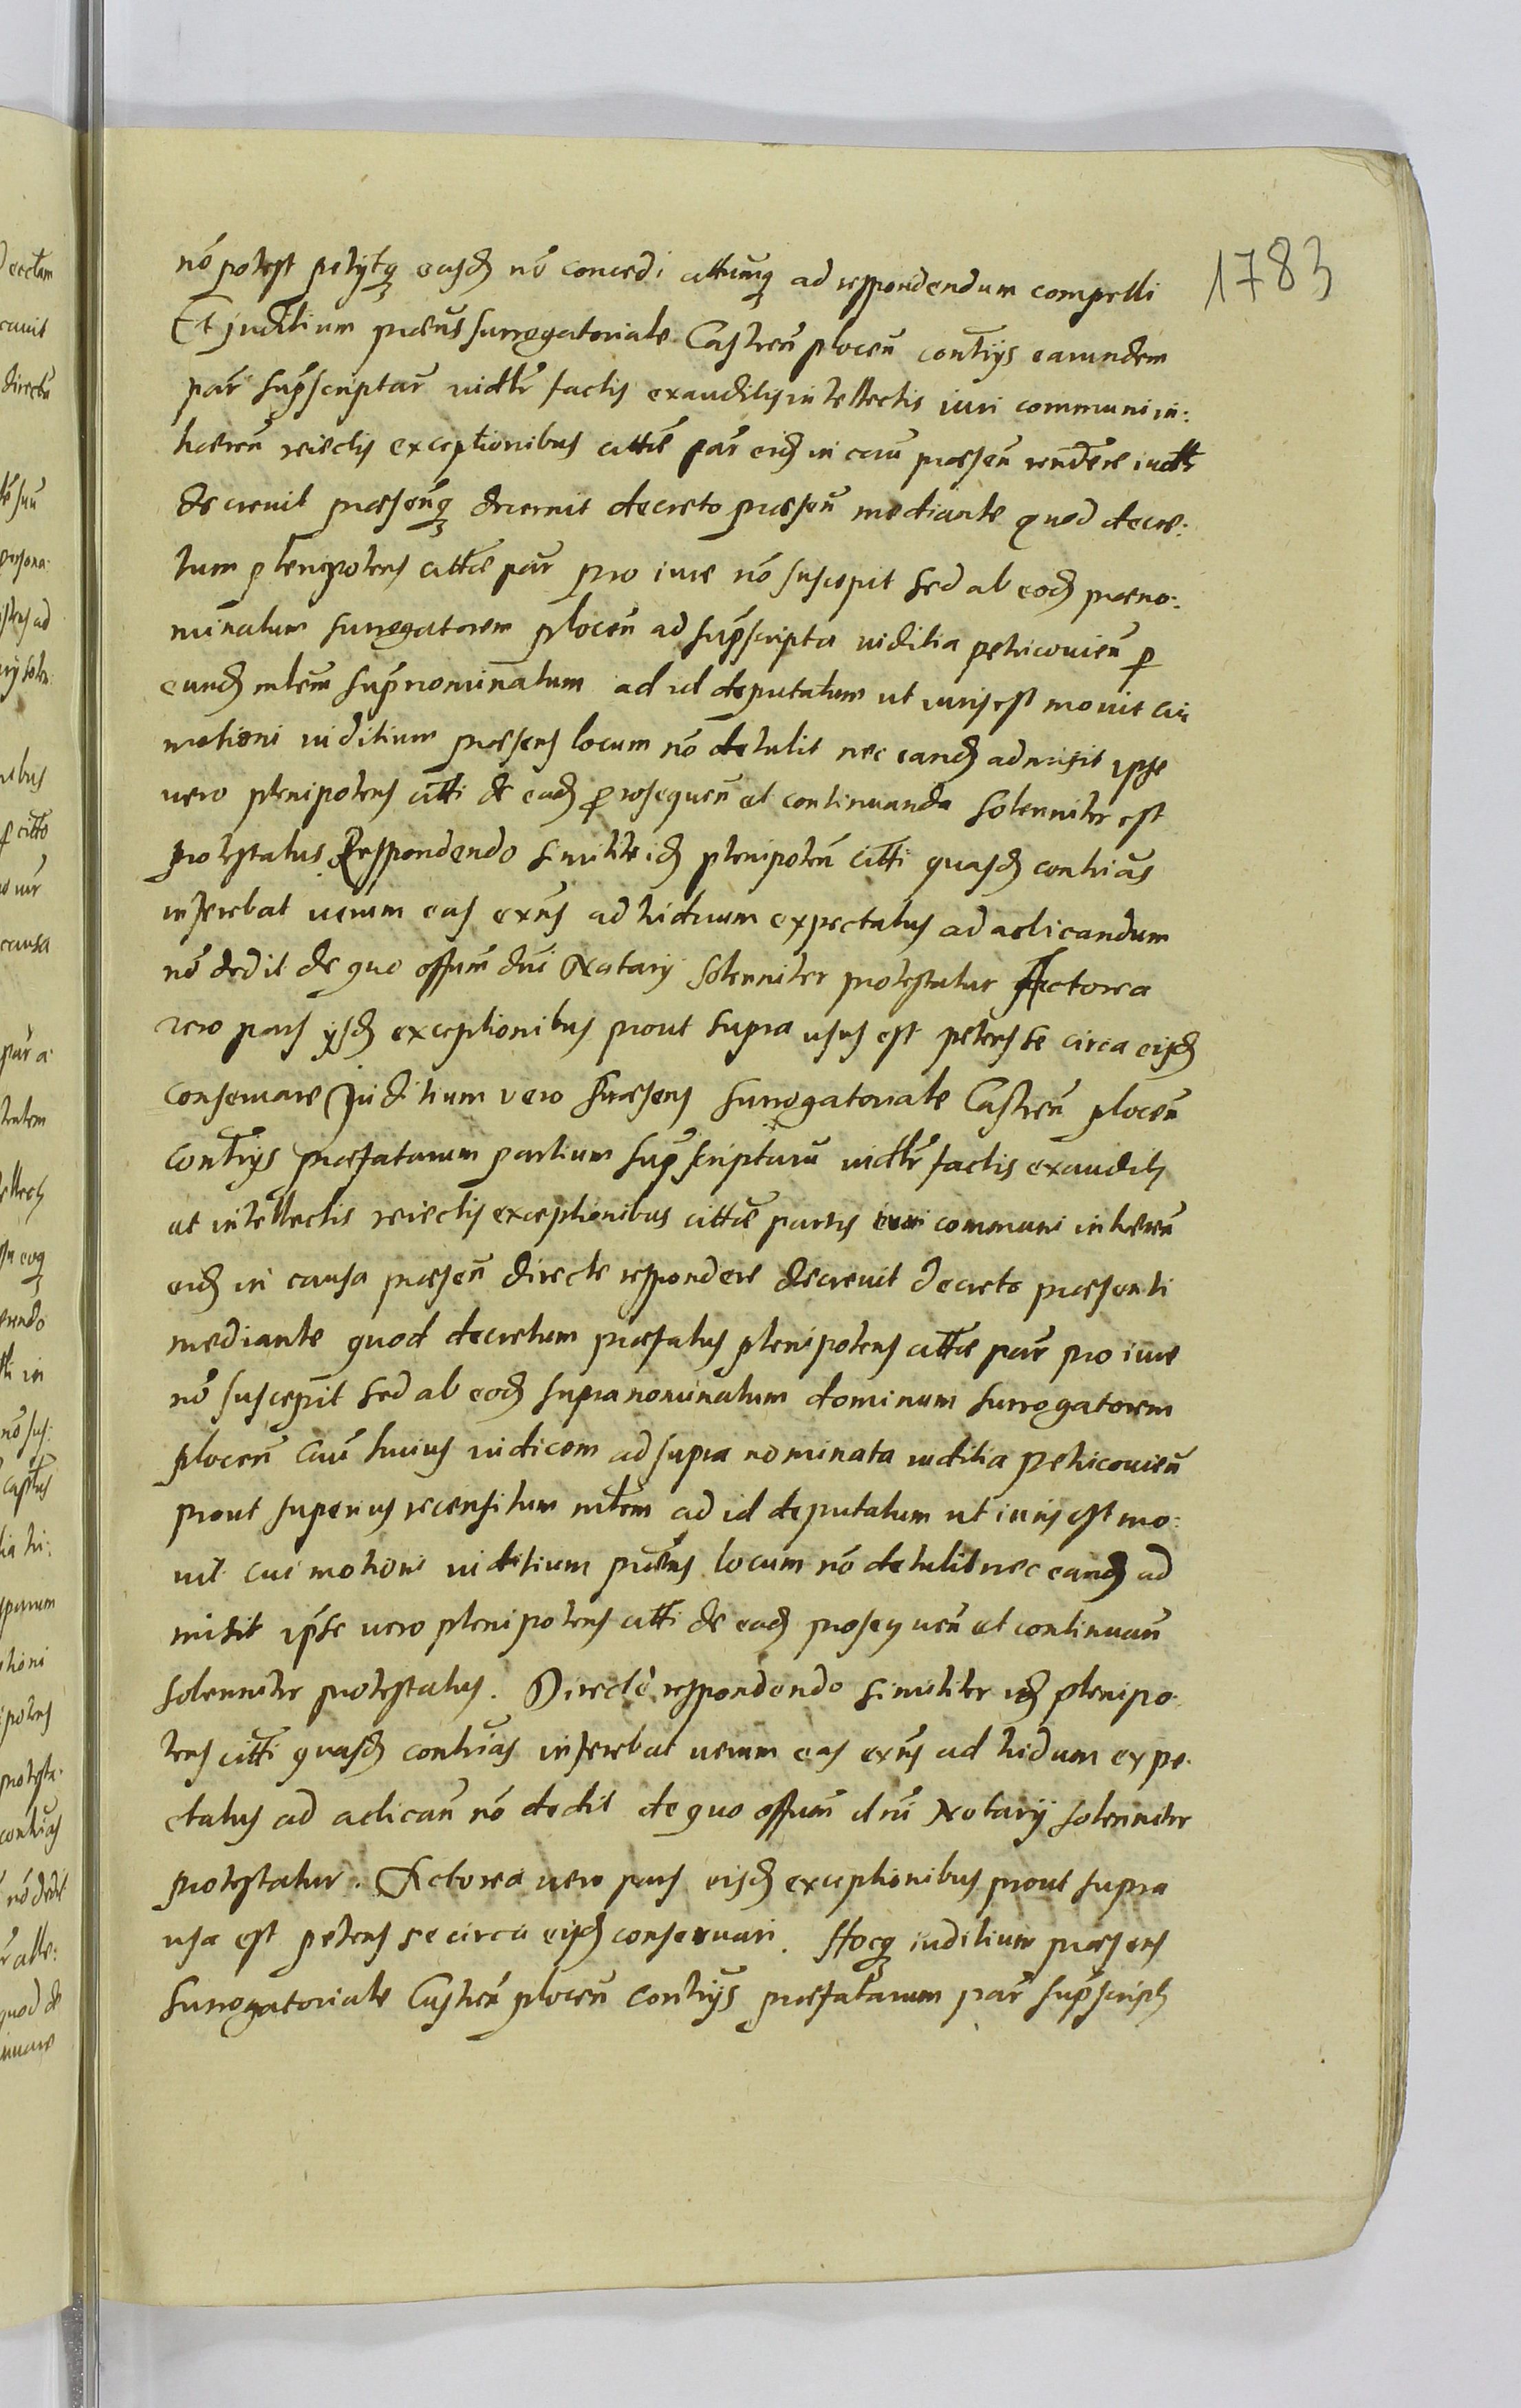 1783
nō potest petijtq easd nō concedi cittumq ad respondendum compelli
Et juditium praēns surrogatoriale Castren̄ plocen̄ contrijs earundem
par̄ sup̄scriptar̄ iudtr factis exauditis intellectis iuri communi in:
haeren̄ reiectis exceptionibus cittae par̄ eid in cau̅ praesen̄ rendere iudtr
decrevit praesenq decernit decreto praesen̄ mediante quod decre:
tum plenipotens cittae par̄ pro iure nō suscepit sed ab eod praeno:
minatum surrogatorem plocen̄ ad sup̄scripta iuditia petricovien̄ p
eund mlem̄ sup̄nominatum ad id deputatum ut iuris est movit cui
motioni iuditium praesens locum nō detulit nec eand admisit ipse
vero plenipotens citti de ead prosequen̄ et continuanda solenniter est
protestatus. Respondendo similite id plenipoten̄ citti quasd contrias
inferebat verum eas exn̄s ad triduum expectatus ad aelicandum
nō dedit de quo offum dni Notarij solenniter protestatur Actorea
vero pars ijsd exceptionibus prout supra usus est petens se circa eisd
conservare Juditium vero praesens surrogatoriale Castren̄ plocen̄
contrijs praefatarum partium sup̄scriptarū iudtr factis exauditis
at intellectis reiectis exceptionibus cittae partis iuri communi inheren̄
eid in causa praesen̄ directe respondere decrevit decreto praesenti
mediante quod decretum praefatus plenipotens cittae par̄ pro iure
nō suscepit sed ab eod supranominatum dominum surrogatorem
plocen̄ cau̅ huius iudicem ad supra nominata iuditia petricovien̄
prout superius recensitum mlem ad id deputatum ut iuris est mo:
vit cui motioni iuditium praēns locum nō detulit nec eand ad
misit ipse vero plenipotens citti de ead prosequen̄ et continuan̄
solenniter protestatus. Directe respondendo similiter id plenipo
tens citti quasd contrias inferebat verum eas exn̄s ad triduum expe
ctatus ad aelican̄ nō dedit de quo offum dnī Notarij solenniter
protestatur. Actorea vero pars eisd exceptionibus prout supra
usa est petens se circa eisd conservari. Hocq iuditium praesens
surrogatoriale Castren̄ plocen̄ contrijs praefatarum par̄ sup̄script